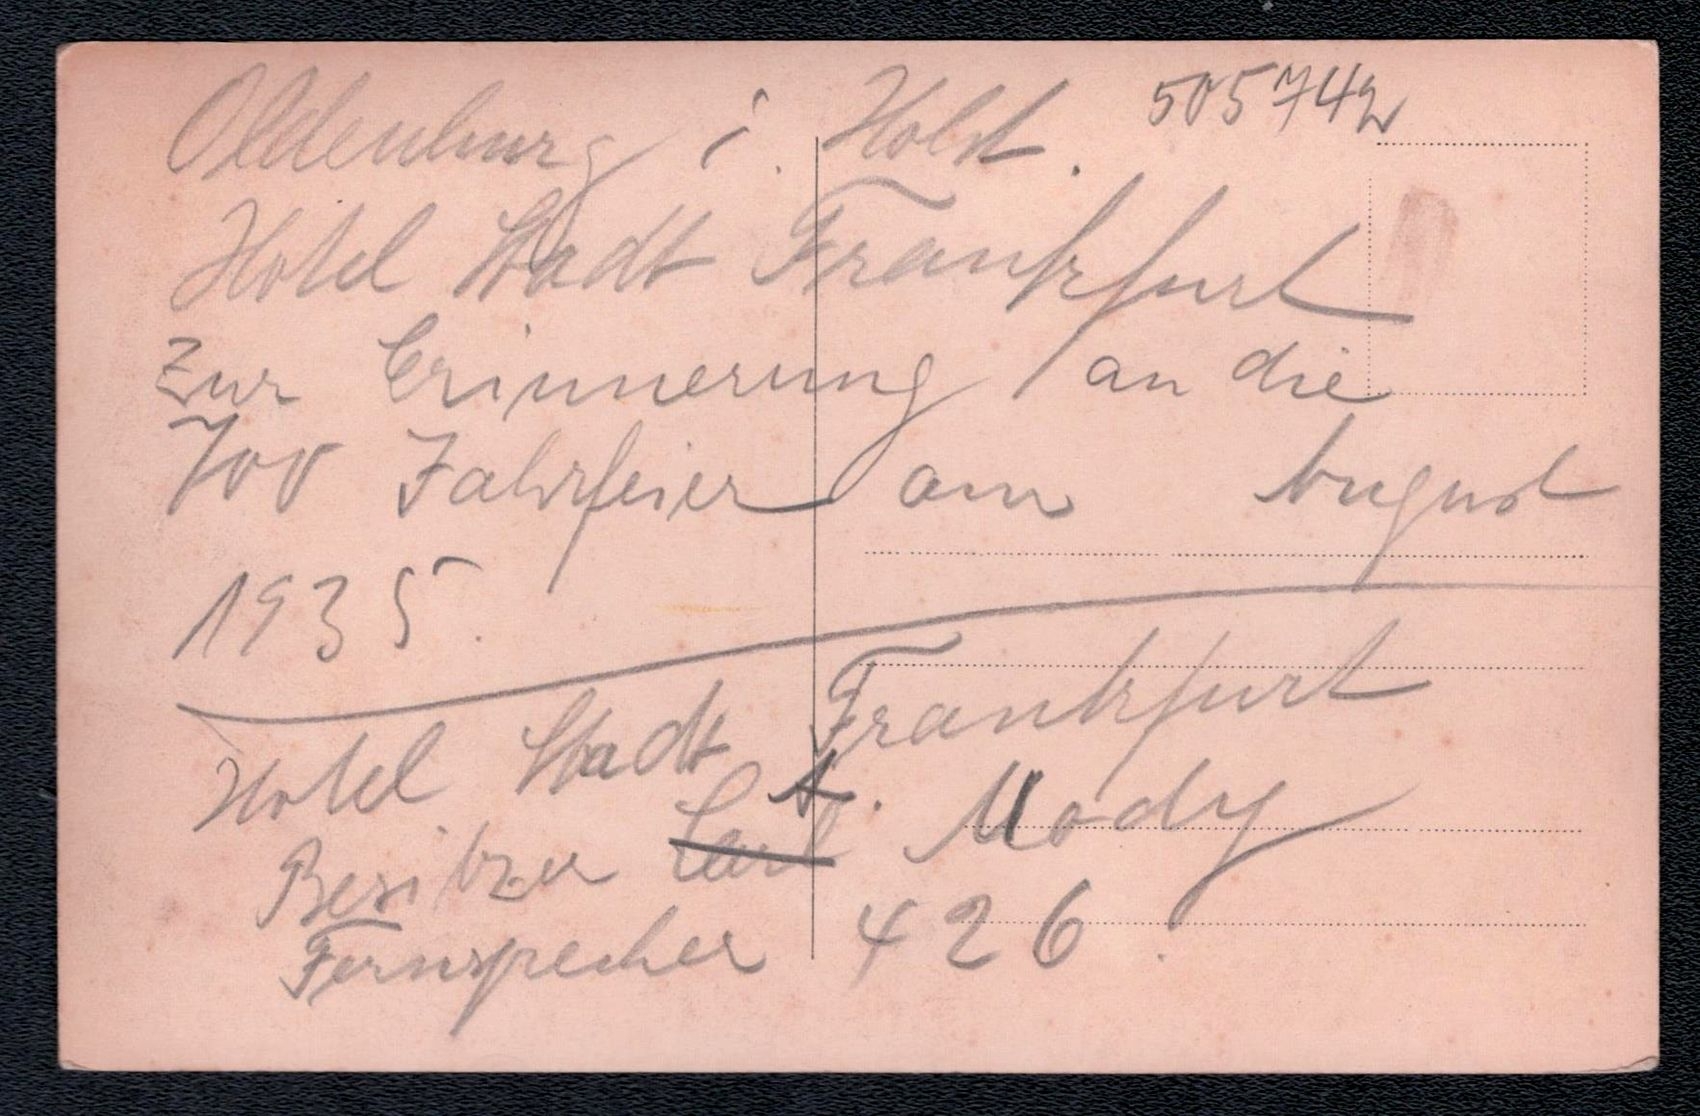 505742
Oldenburg i. Holst.
Hotel Stadt Frankfurt
Zur Erinnerung an die
700 Jahrfeier am August
1935.
Hotel Stadt Frankfurt
Besitzer Carl A. Mody
Fernsprecher 426.